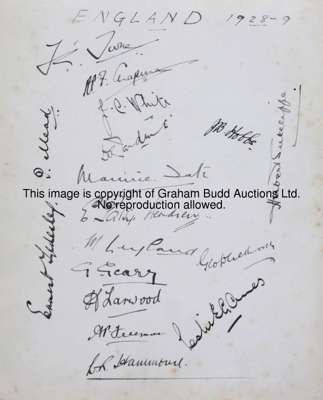 ENGLAND 1928-9
A.P.F. Chapman
J. C. White
J B Hobbs
P. Mead
Herbert Sutcliffe
Maurice Tate
This image is copyright of Graham Budd Auctions Ltd.
No reproduction allowed.
E. Patsy Hendren.
M Leyland
G Geary
Geo Duckworth
Ernest Tyldesley
H Larwood
AP Freeman
Leslie E G Ames
W. R. Hammond.